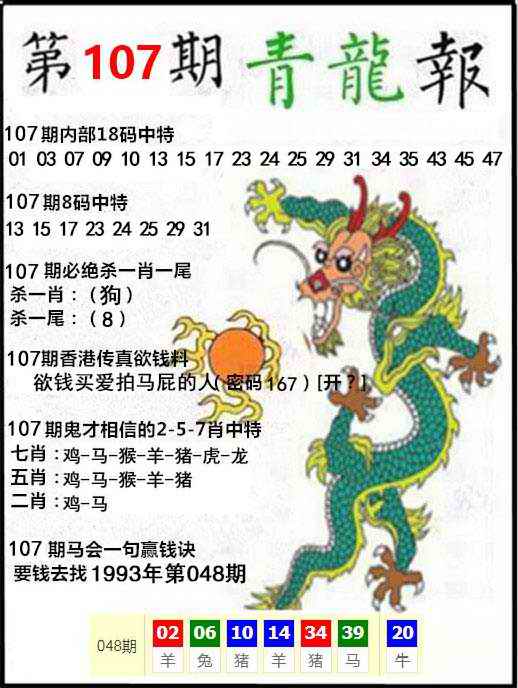 第107期青龍報
107期内部18码中特
01 03 07 09 10 13 15 17 23 24 25 29 31 34 35 43 45 47
107期8码中特
13 15 17 23 24 25 29 31
107期必绝杀一肖一尾
杀一肖：（狗）
杀一尾：（8）
107期香港传真欲钱料
欲钱买爱拍马屁的人（密码167）[开？]
107期鬼才相信的2-5-7肖中特
七肖：鸡-马-猴-羊-猪-虎-龙
五肖：鸡-马-猴-羊-猪
二肖：鸡-马
107期马会一句赢钱诀
要钱去找1993年第048期
048期 02 06 10 14 34 39 20
羊 兔 猪 羊 猪 马 牛